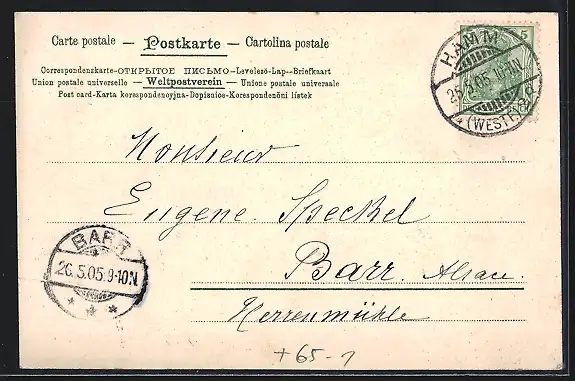 Carte postale — Postkarte — Cartolina postale
Correspondenzkarte-ОТКРЫТОЕ ПИСЬМО-Levelező-Lap-Briefkaart
Union postale universelle — Weltpostverein — Unione postale universale
Post card-Karta korespondencyjna-Dopisnice-Korespondenční lístek
HAMM
25.5.05
(WESTF.)
5
Monsieur
Eugene Speckel
Barr. Alsace.
Herrenmühle
BARR
26.5.05.9-10N.
* * *
+65-1